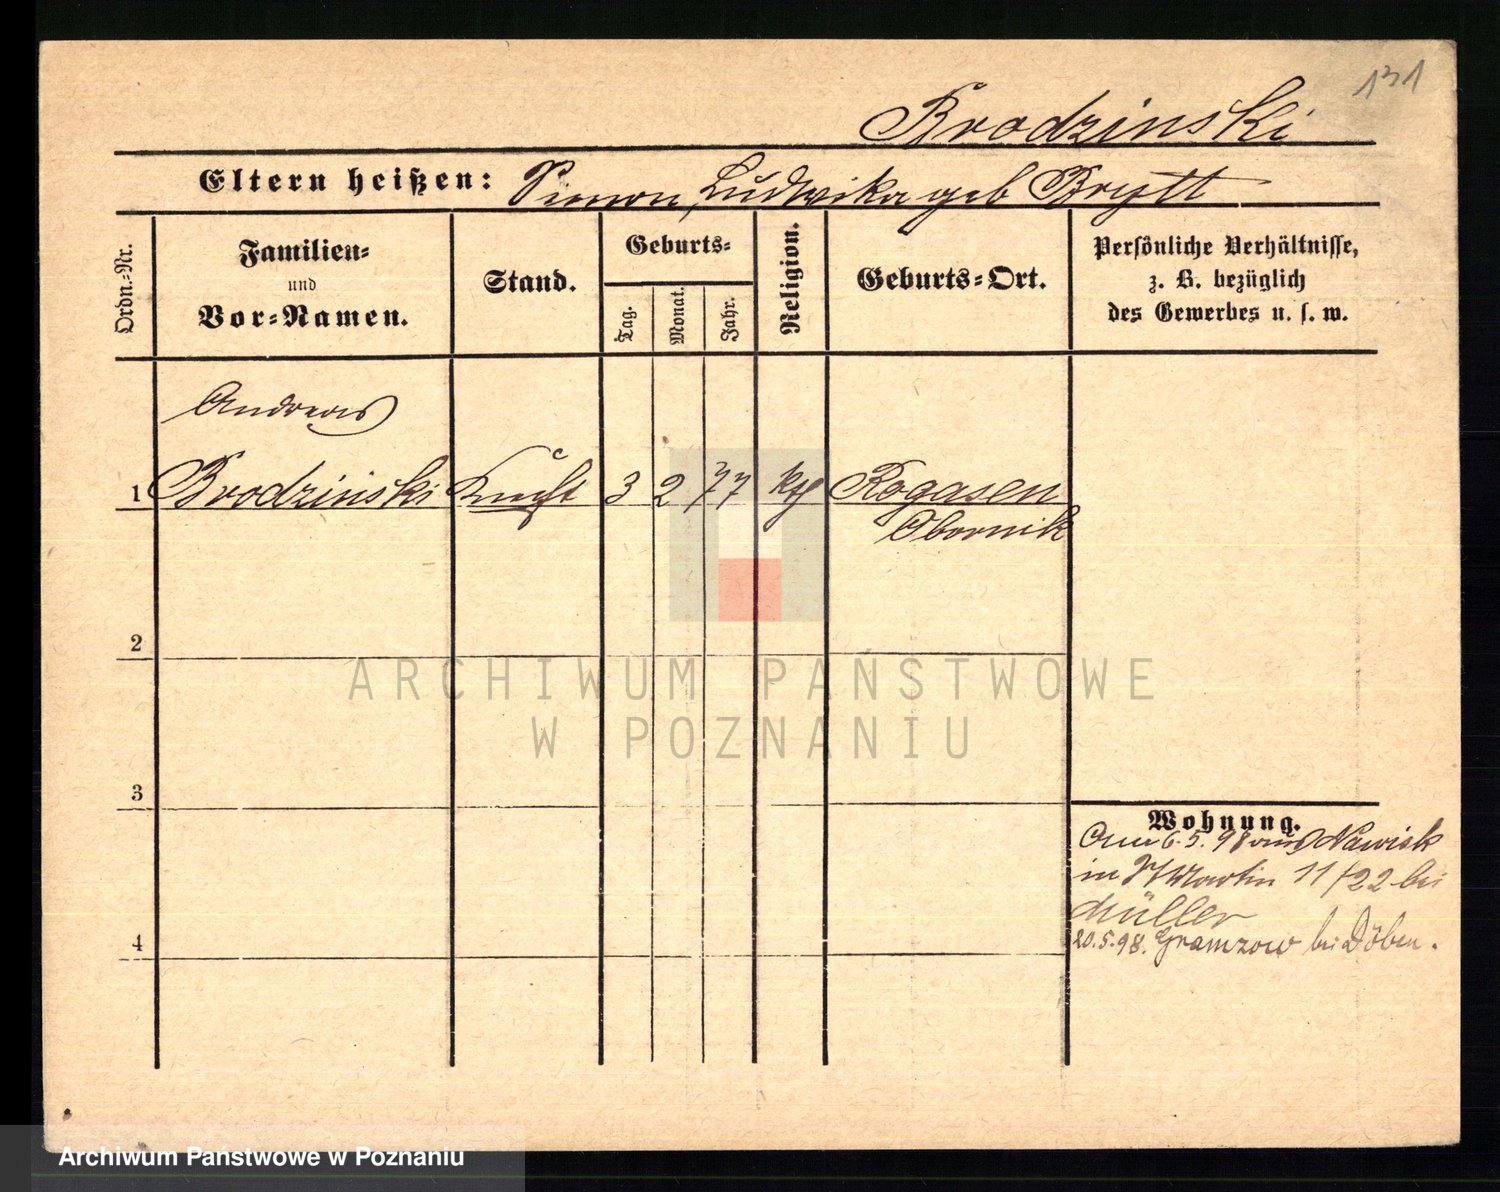 131
Brodzinski
Eltern heißen: Simon, Ludwika geb Brytt
Ordn.-Nr.
Familien-
und
Vor-Namen.
Stand.
Geburts-
Tag.
Monat.
Jahr.
Religion.
Geburts-Ort.
Persönliche Verhältnisse,
z. B. bezüglich
des Gewerbes u. s. w.
Andreas
1 Brodzinski Knecht 3 2 77 kth Rogasen
Obornik
2
3
4
Wohnung.
6.5.98 aus
in St Martin 11/22 bei
Müller
20.5.98. Gramzow bei Döben.
ARCHIWUM PAŃSTWOWE
W POZNANIU
Archiwum Państwowe w Poznaniu